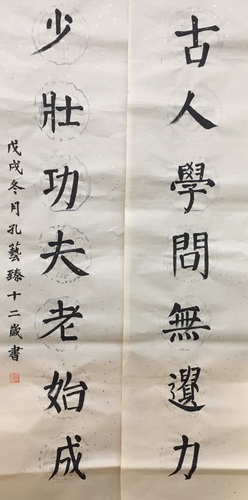 古人學問無遺力
少壯功夫老始成
戊戌冬月孔藝臻十二歲書